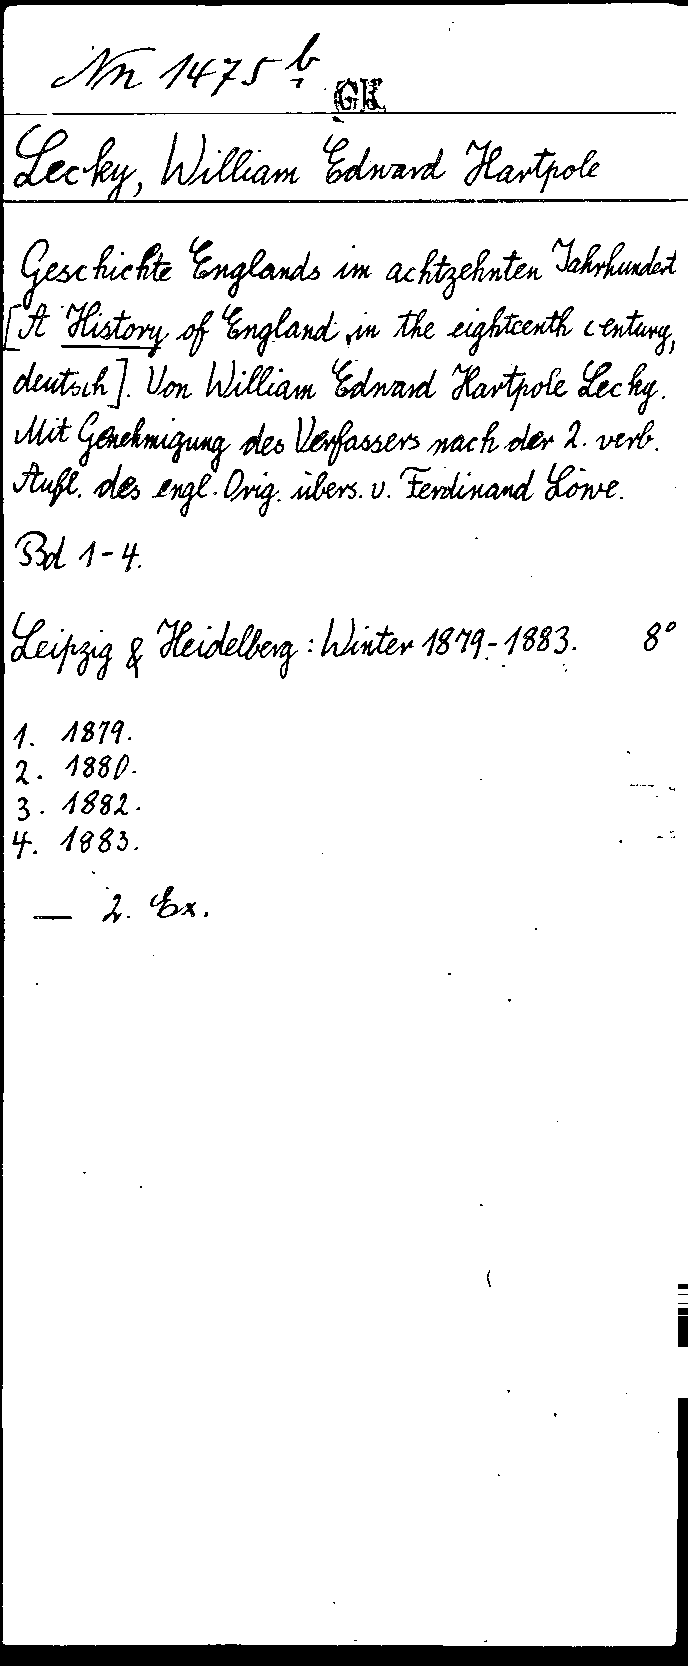 Nn 1475 b
GK
Lecky, William Edward Hartpole
Geschichte Englands im achtzehnten Jahrhundert
[A History of England in the eighteenth century,
deutsch]. Von William Edward Hartpole Lecky.
Mit Genehmigung des Verfassers nach der 2. verb.
Aufl. des engl. Orig. übers. v. Ferdinand Löwe.
Bd 1-4.
Leipzig & Heidelberg: Winter 1879-1883. 8°
1. 1879.
2. 1880.
3. 1882.
4. 1883.
— 2. Ex.